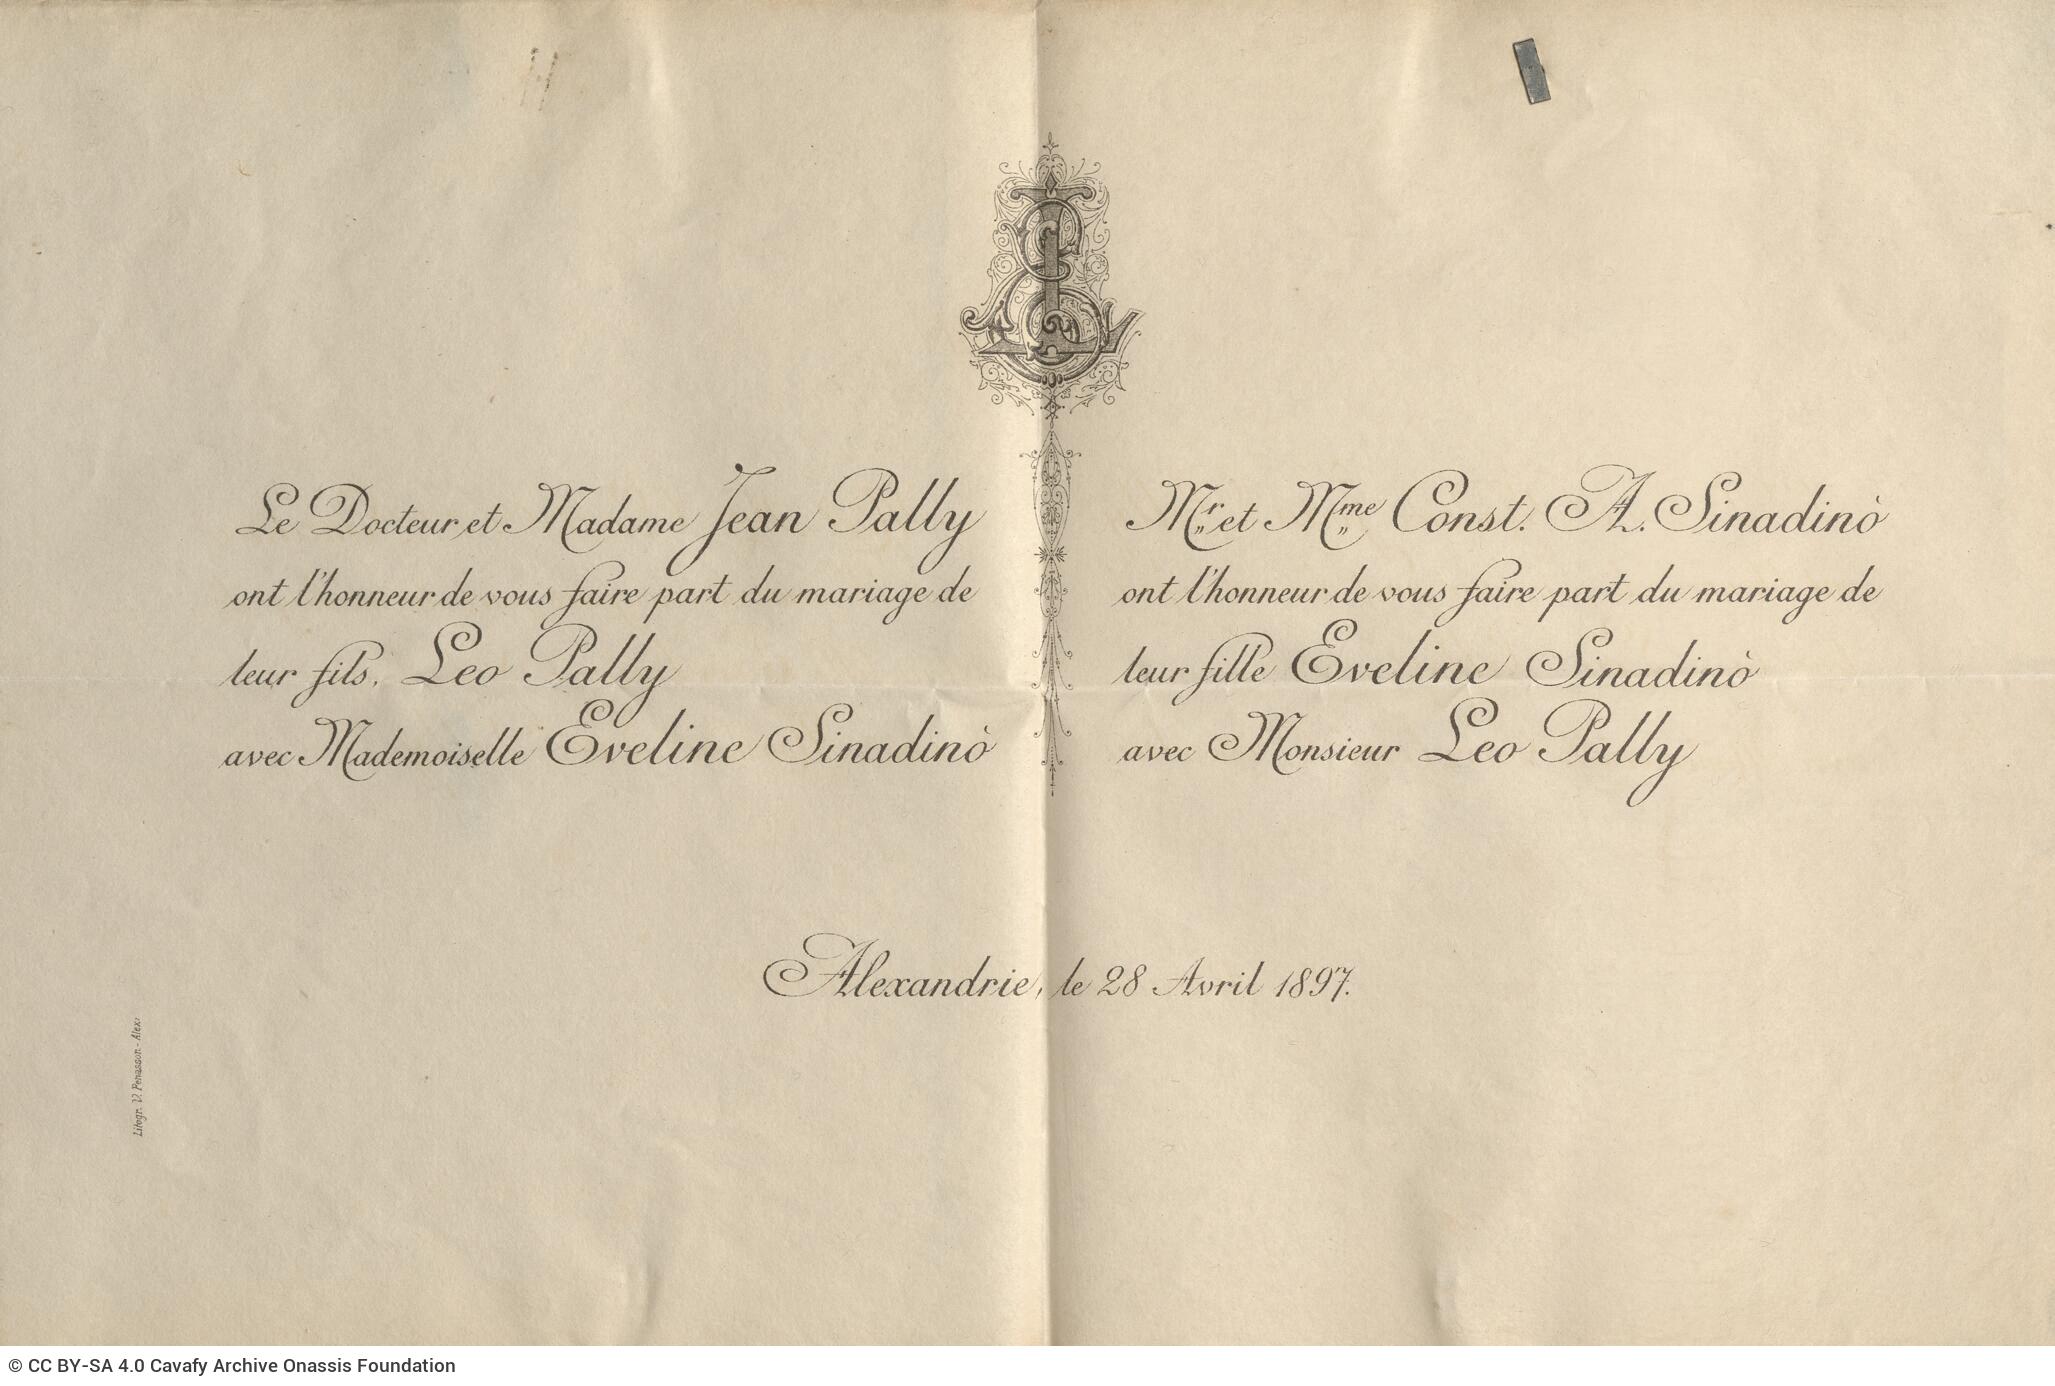 Le Docteur et Madame Jean Pally
ont l'honneur de vous faire part du mariage de
leur fils, Leo Pally
avec Mademoiselle Eveline Sinadinò
Mr et Mme Const. A. Sinadinò
ont l'honneur de vous faire part du mariage de
leur fille Eveline Sinadinò
avec Monsieur Leo Pally
Alexandrie, le 28 Avril 1897.
Litogr. V. Penasson - Alex.
© CC BY-SA 4.0 Cavafy Archive Onassis Foundation